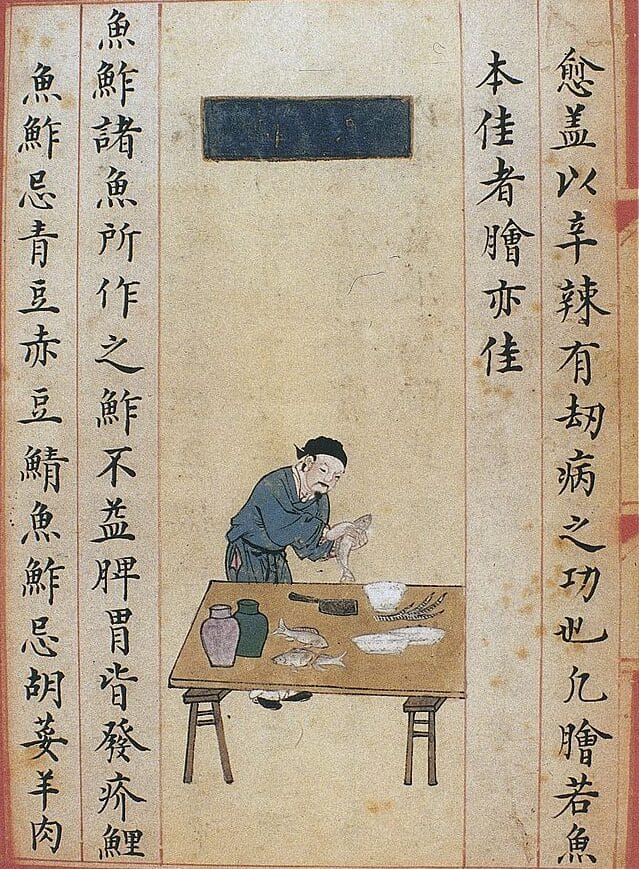 愈盖以辛辣有刼病之功也凡膾若魚
本佳者膾亦佳
魚鮓諸魚所作之鮓不益脾胃皆發疥鯉
魚鮓忌青豆赤豆鯖魚鮓忌胡荽羊肉